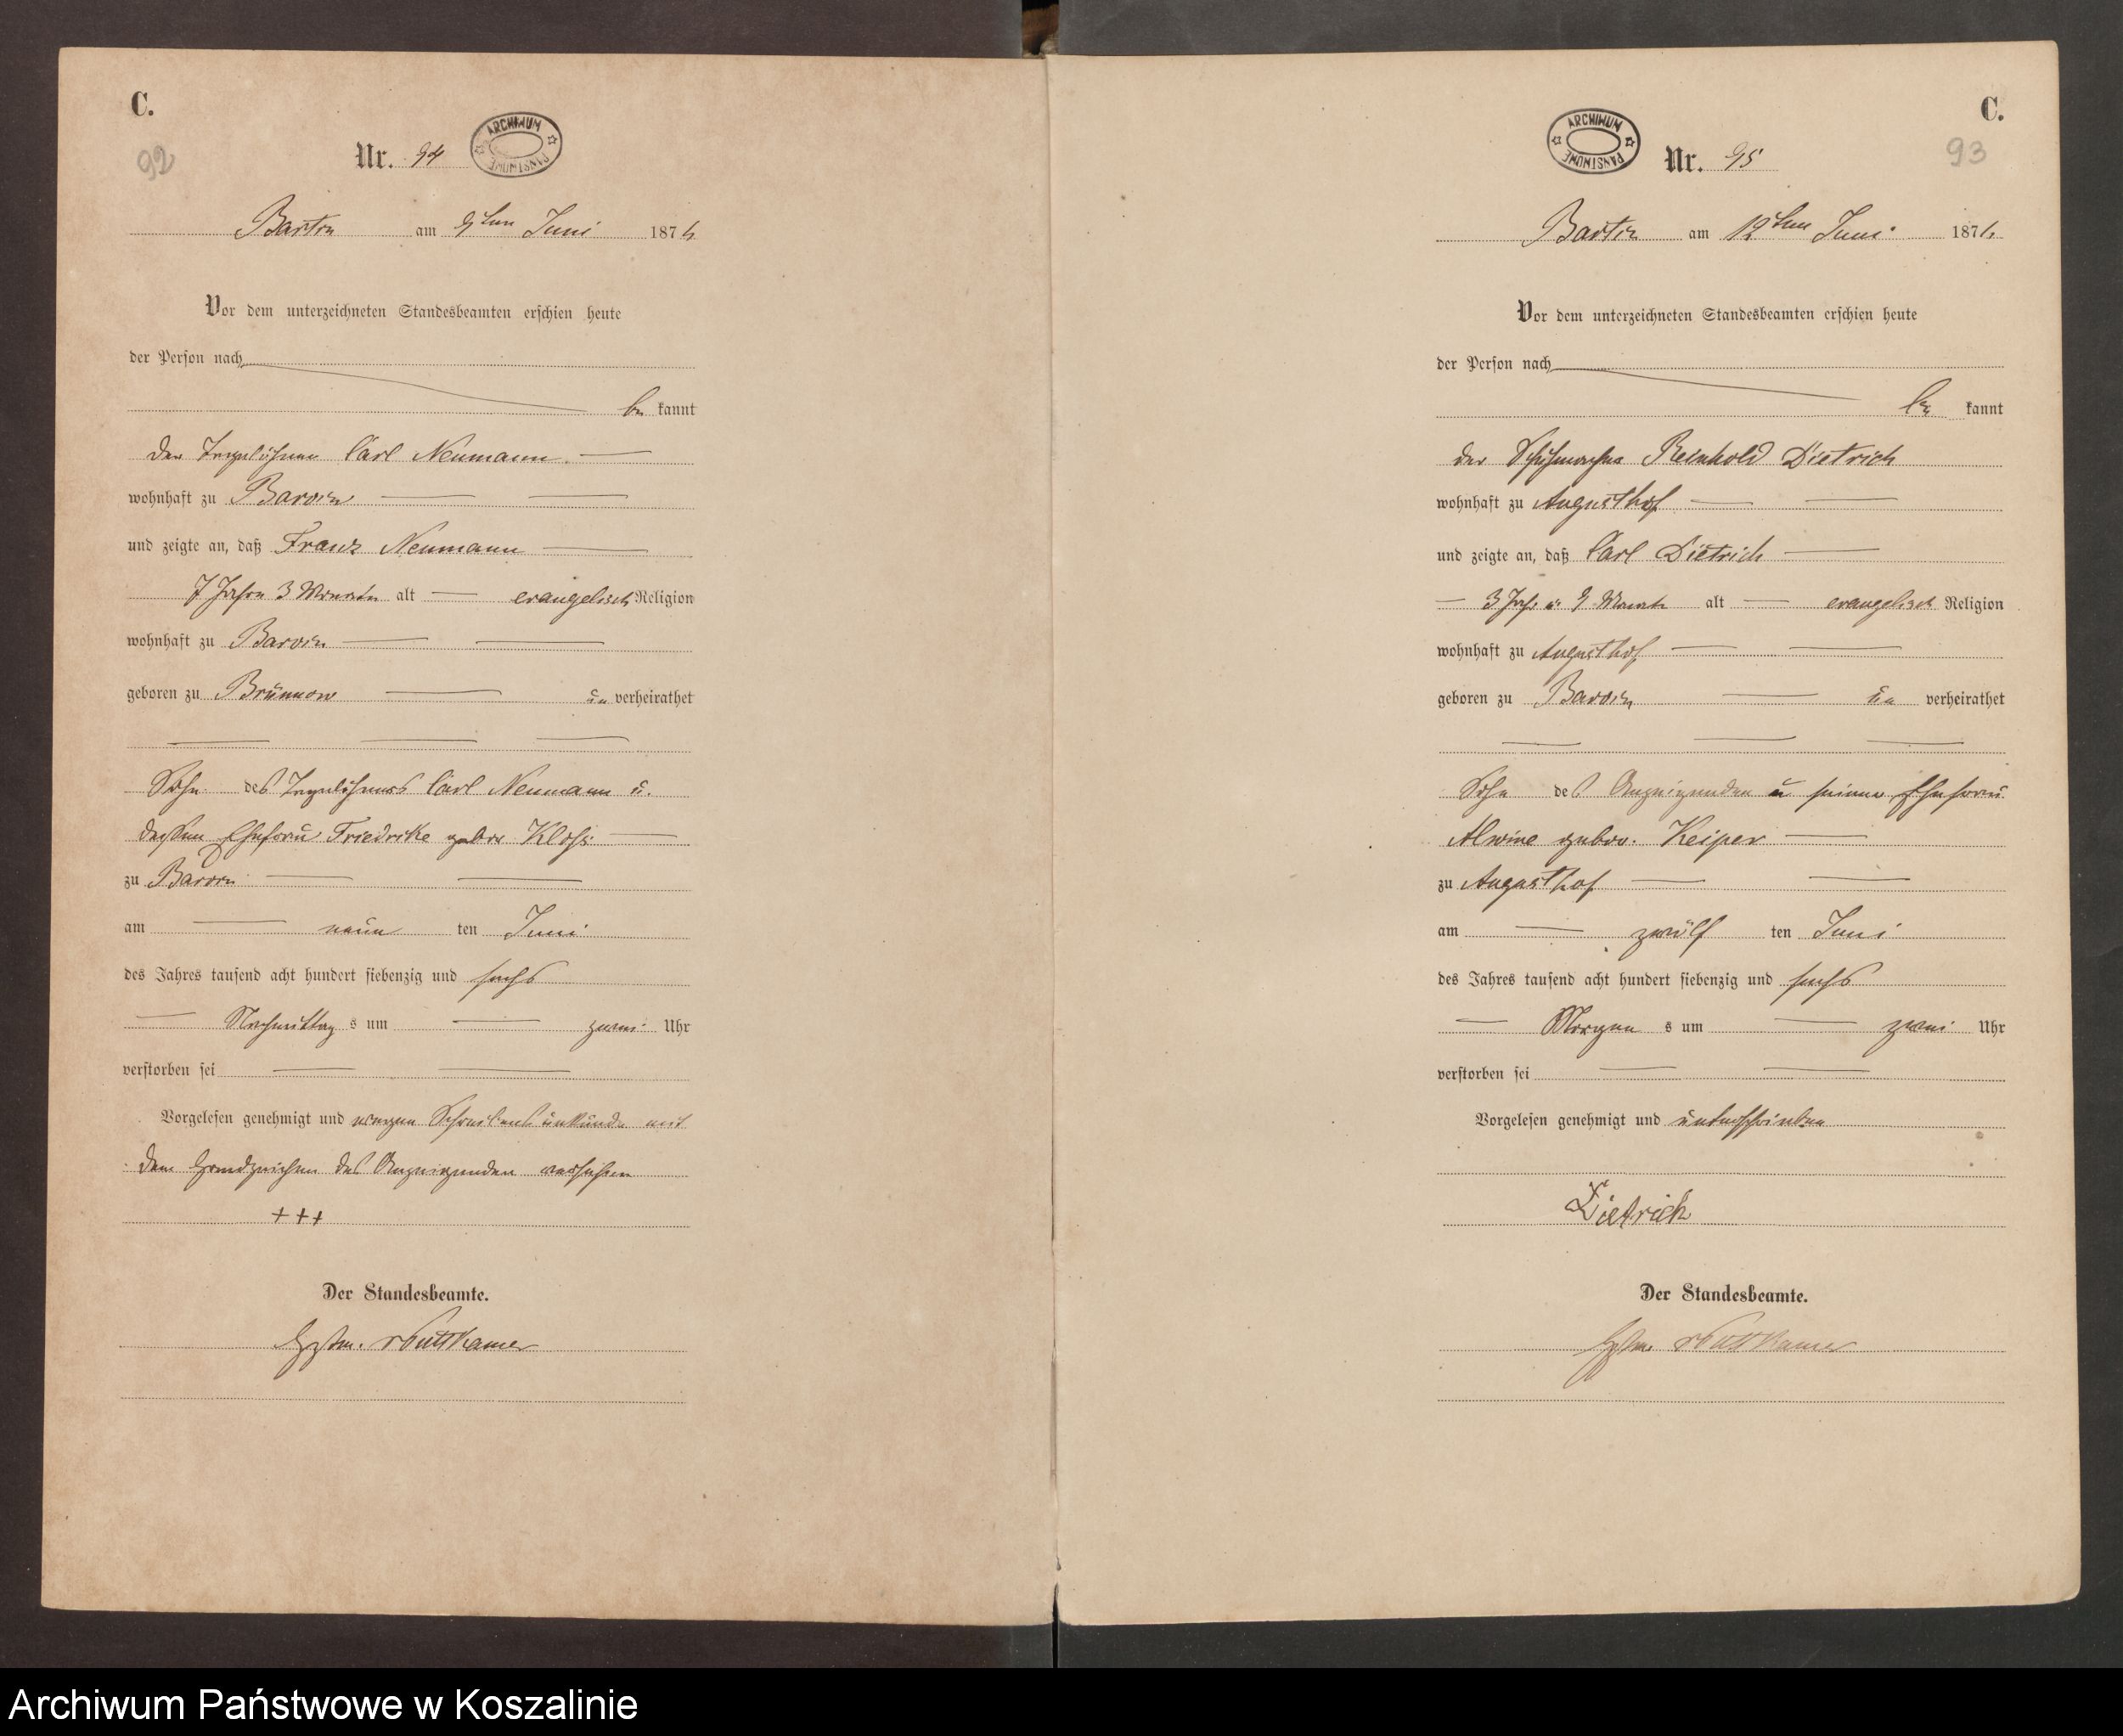 C.
92
Nr. 94
ARCHIWUM PAŃSTWOWE
Bartin am 9ten Juni 1876
Vor dem unterzeichneten Standesbeamten erschien heute
der Person nach
be kannt
der Tagelöhner Carl Neumann
wohnhaft zu Barvin
und zeigte an, daß Franz Neumann
7 Jahre 3 Monate alt evangelisch Religion
wohnhaft zu Barvin
geboren zu Brünnow un verheirathet
Sohn des Tagelöhners Carl Neumann u.
dessen Ehefrau Friedrike gebor
zu Barvin
am neun ten Juni
des Jahres tausend acht hundert siebenzig und sechs
Nachmittag s um zwei Uhr
verstorben sei
Vorgelesen genehmigt und wegen Schreibensunkunde mit
dem Handzeichen des Anzeigenden versehen
+++
Der Standesbeamte.
Puttkamer
C.
93
ARCHIWUM PAŃSTWOWE
Nr. 95
Bartin am 12ten Juni 1876
Vor dem unterzeichneten Standesbeamten erschien heute
der Person nach
be kannt
der Schuhmacher Reinhold Dietrich
wohnhaft zu Augusthof
und zeigte an, daß Carl Dietrich
3 Jahr u 9 Monate alt evangelisch Religion
wohnhaft zu Augusthof
geboren zu Barvin un verheirathet
Sohn des Anzeigenden u seiner Ehefrau
Alwine gebor. Keiper
zu Augusthof
am zwölf ten Juni
des Jahres tausend acht hundert siebenzig und sechs
Morgen s um zwei Uhr
verstorben sei
Vorgelesen genehmigt und unterschrieben
Dietrich
Der Standesbeamte.
Puttkamer
Archiwum Państwowe w Koszalinie